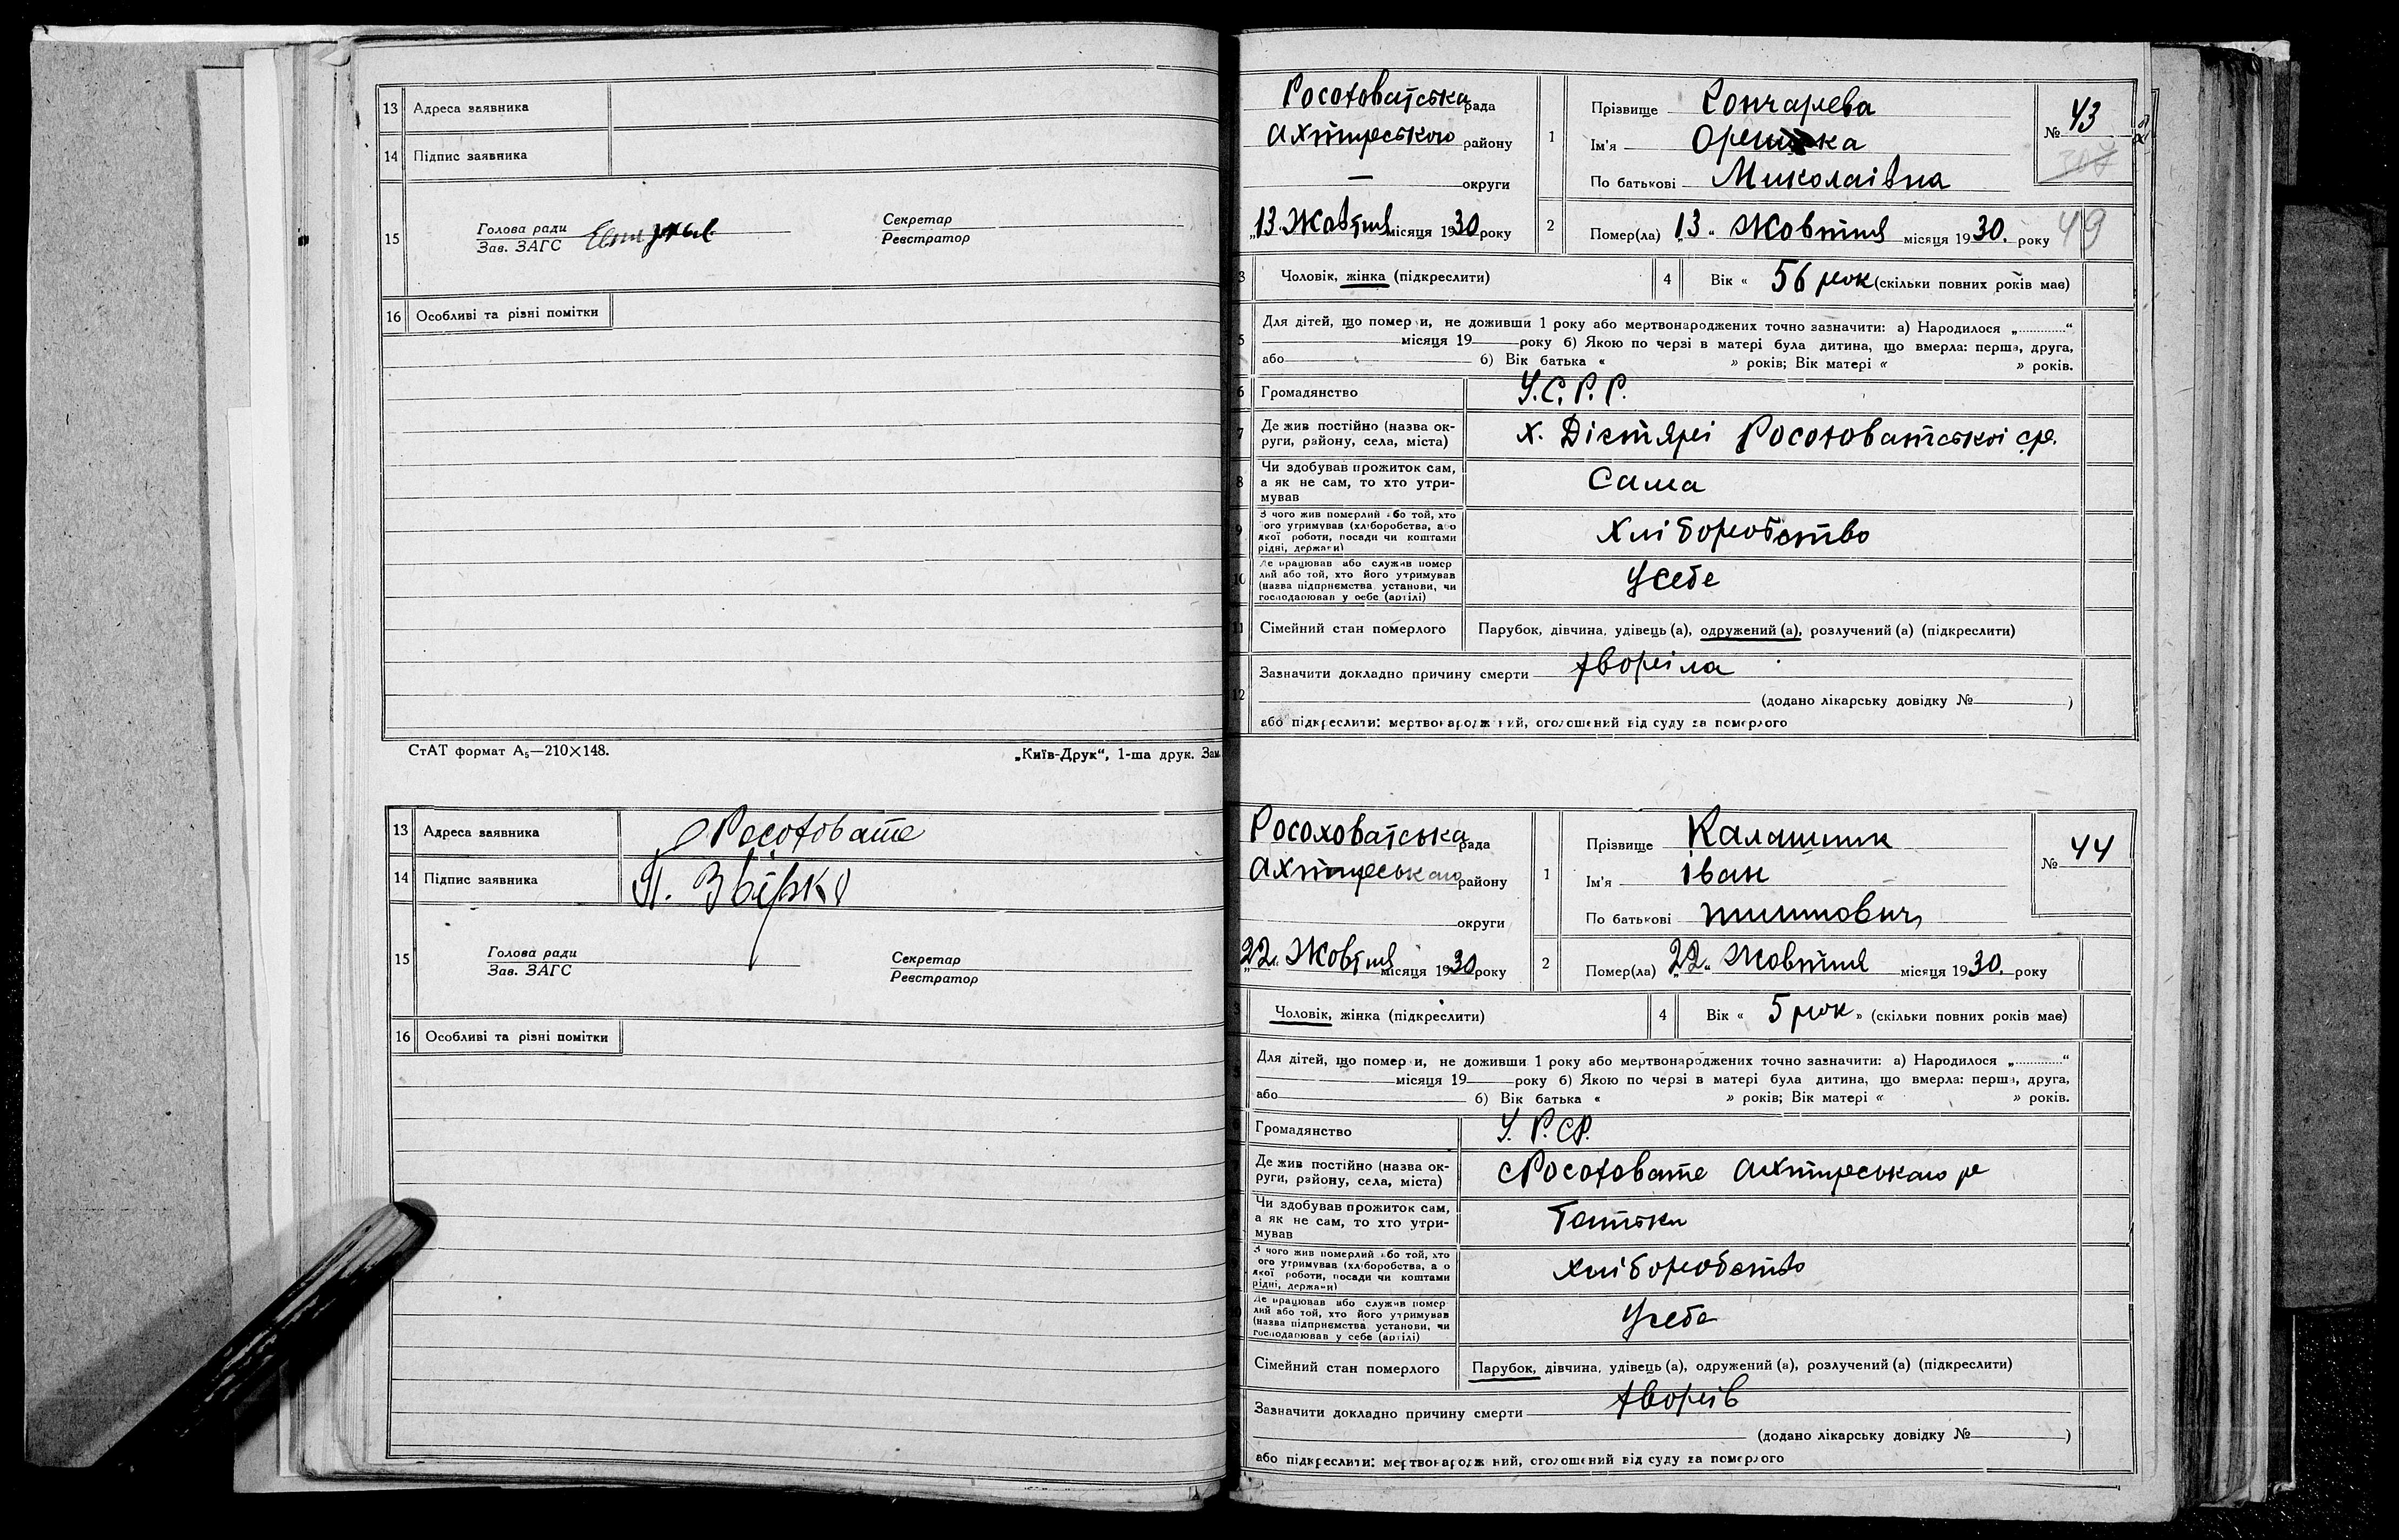 13 Адреса заявника
14 Підпис заявника
15 Голова ради
Зав. ЗАГС
Секретар
Реєстратор
16 Особливі та різні помітки
СтАТ формат А₅—210×148.
„Київ-Друк“, 1-ша друк. Зам.
13 Адреса заявника с Росоховате
14 Підпис заявника П. Звірко
15 Голова ради
Зав. ЗАГС
Секретар
Реєстратор
16 Особливі та різні помітки
Росоховатська рада
Ахтирського району
— округи
„13“ Жовтня місяця 1930 року
1 Прізвище Гончарева
Ім'я
По батькові Миколаівна
№ 43
307
49
2 Помер(ла) „13“ Жовтня місяця 1930. року
3 Чоловік, жінка (підкреслити)
4 Вік « 56 рок (скільки повних років має)
5 Для дітей, що померли, не доживши 1 року або мертвонароджених точно зазначити: а) Народилося „..............“
місяця 19 року б) Якою по черзі в матері була дитина, що вмерла: перша, друга,
або б) Вік батька « » років; Вік матері « » років.
6 Громадянство У.С.Р.Р.
7 Де жив постійно (назва округи, району, села, міста) х. Дігтярі Росоховатської с.р.
8 Чи здобував прожиток сам,
а як не сам, то хто утримував Сама
9 З чого жив померлий або той, хто
його утримував (хліборобства, або
якої роботи, посади чи коштами
рідні, держави) Хліборобство
10 Де працював або служив помер
лий або той, хто його утримував
(назва підприємства, установи, чи
господарював у себе (артілі) Усебе
11 Сімейний стан померлого Парубок, дівчина, удівець (а), одружений (а), розлучений (а) (підкреслити)
12 Зазначити докладно причину смерти хворіла
(додано лікарську довідку № )
або підкреслити: мертвонароджений, оголошений від суду за померлого
Росоховатська рада
Ахтирського району
округи
„22“ Жовтня місяця 1930 року
1 Прізвище Калашник
Ім'я іван
По батькові
№ 44
2 Помер(ла) „22“ Жовтня місяця 1930. року
3 Чоловік, жінка (підкреслити)
4 Вік « 5 рок » (скільки повних років має)
Для дітей, що померли, не доживши 1 року або мертвонароджених точно зазначити: а) Народилося „..............“
місяця 19 року б) Якою по черзі в матері була дитина, що вмерла: перша, друга,
або б) Вік батька « » років; Вік матері « » років.
Громадянство У.Р.С.Р.
Де жив постійно (назва округи, району, села, міста) с Росоховате Ахтирського р
Чи здобував прожиток сам,
а як не сам, то хто утримував Батьки
З чого жив померлий або той, хто
його утримував (хліборобства, або
якої роботи, посади чи коштами
рідні, держави) Хліборобство
10 Де працював або служив помер
лий або той, хто його утримував
(назва підприємства, установи, чи
господарював у себе (артілі) Усебе
Сімейний стан померлого Парубок, дівчина, удівець (а), одружений (а), розлучений (а) (підкреслити)
Зазначити докладно причину смерти хворів
(додано лікарську довідку № )
або підкреслити: мертвонароджений, оголошений від суду за померлого